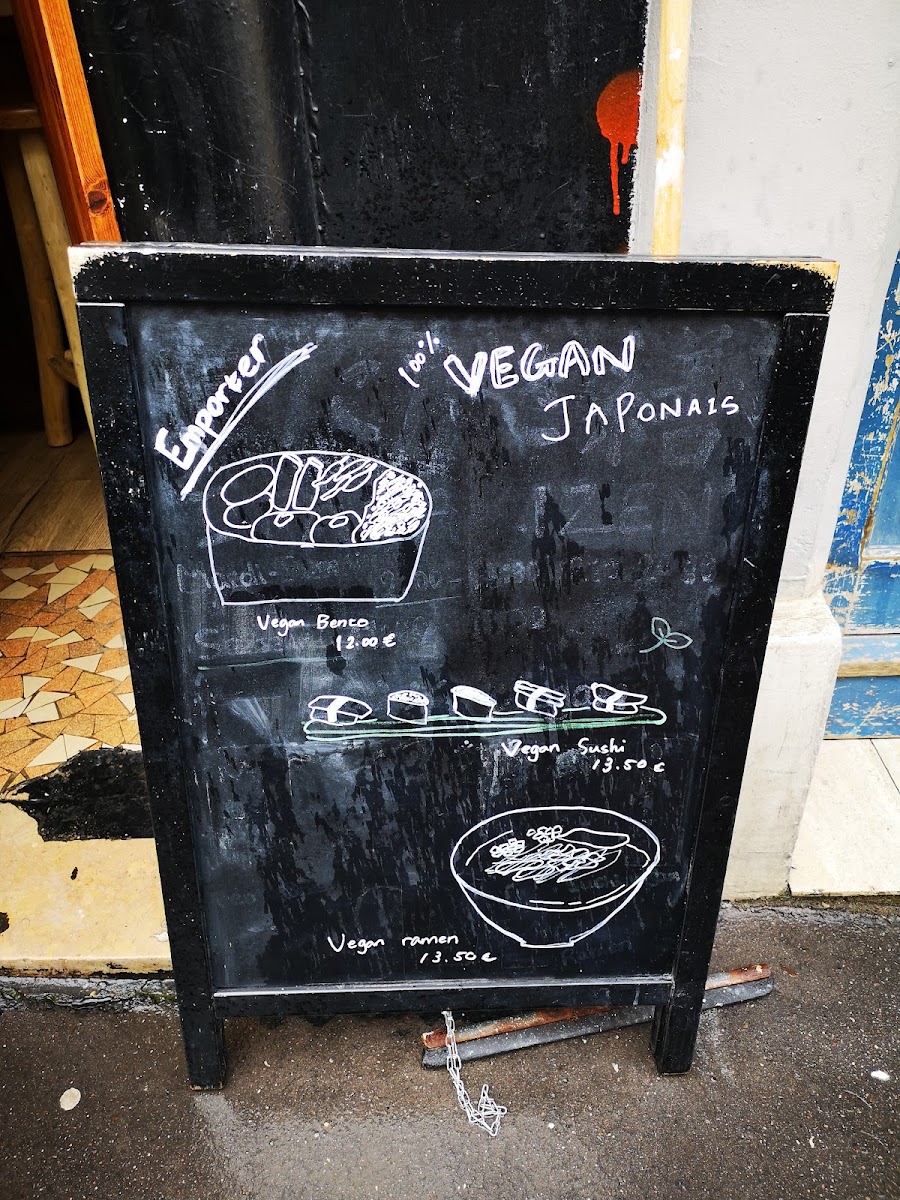 Emporter
100% VEGAN
JAPONAIS
Vegan Bento
12.00 €
Vegan Sushi
13.50 €
Vegan ramen
13.50 €